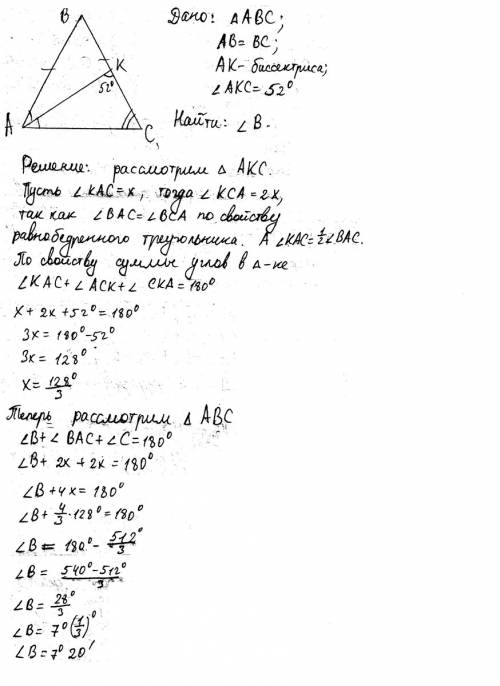 B
K
52°
A
C
Дано: △ABC;
AB = BC;
AK - биссектриса;
∠AKC = 52°
Найти: ∠B.
Решение: рассмотрим △ AKC.
Пусть ∠KAC = x, тогда ∠KCA = 2x,
так как ∠BAC = ∠BCA по свойству
равнобедренного треугольника. А ∠KAC = 1/2 ∠BAC.
По свойству суммы углов в △-ке
∠KAC + ∠ACK + ∠CKA = 180°
x + 2x + 52° = 180°
3x = 180° - 52°
3x = 128°
x = 128°/3
Теперь рассмотрим △ ABC
∠B + ∠BAC + ∠C = 180°
∠B + 2x + 2x = 180°
∠B + 4x = 180°
∠B + 4/3 · 128° = 180°
∠B = 180° - 512°/3
∠B = (540° - 512°)/3
∠B = 28°/3
∠B = 7°(1/3)°
∠B = 7° 20'